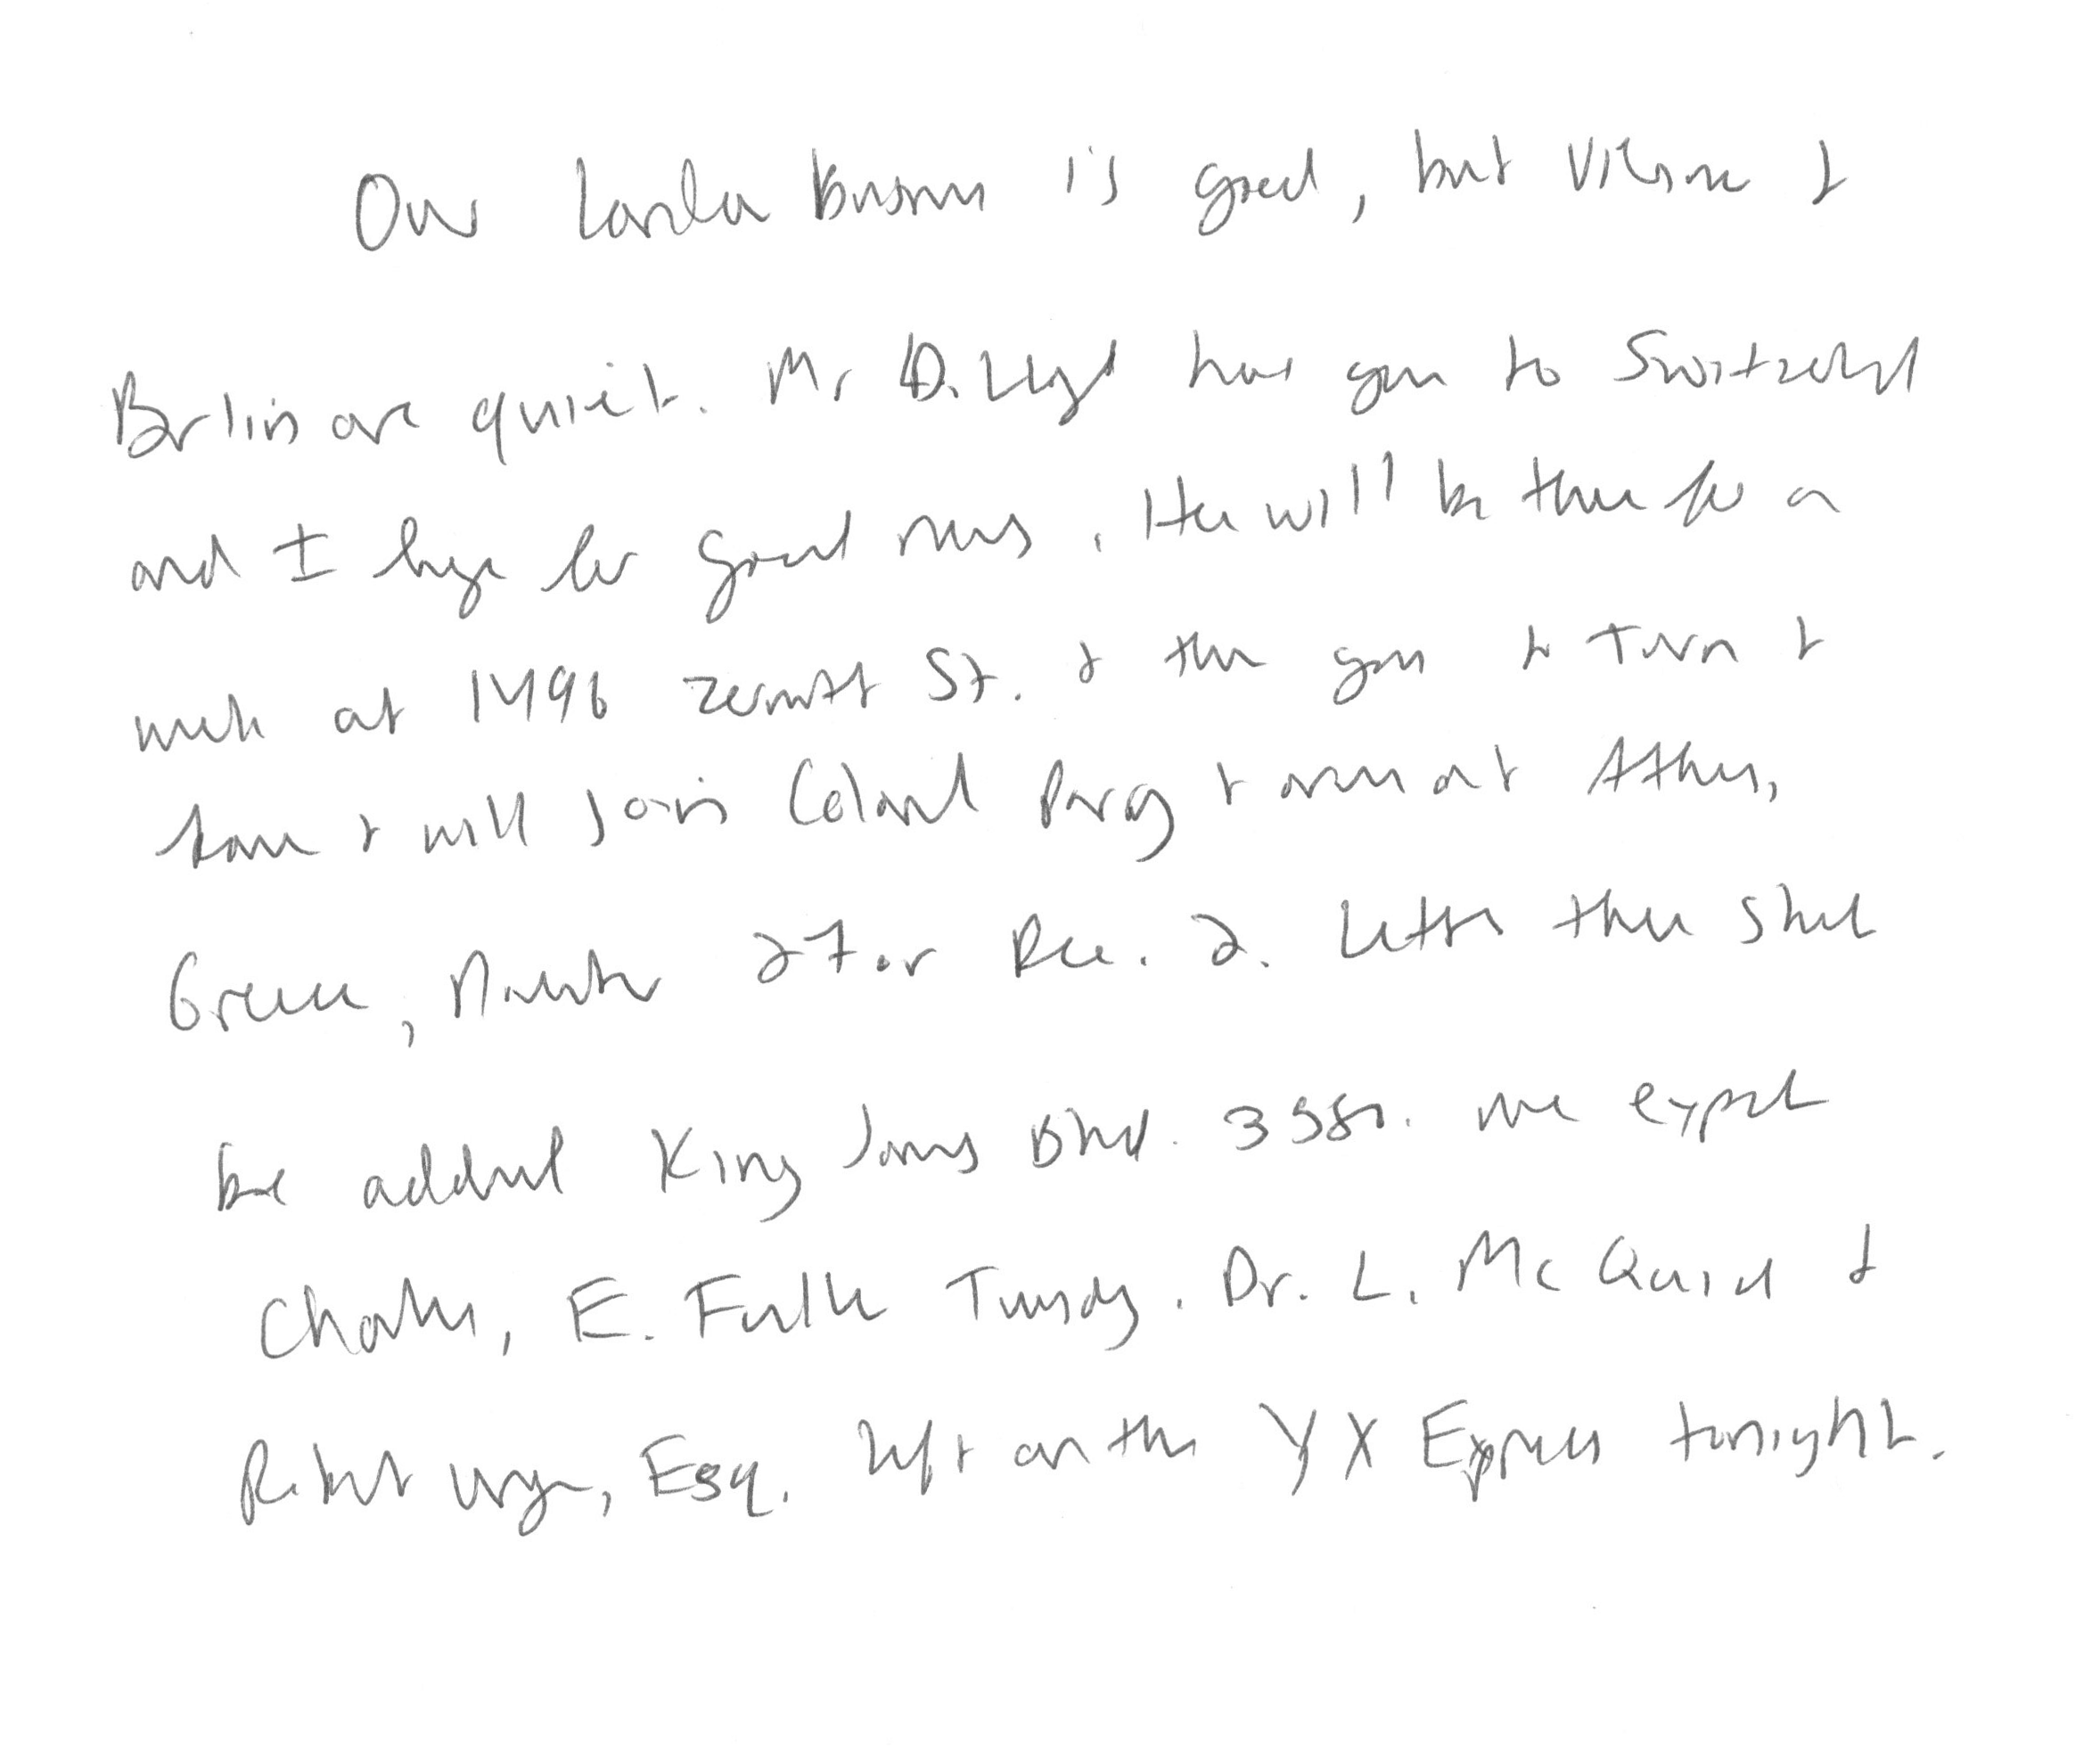 Our London business is good, but Vienna &
Berlin are quiet. Mr D. Lloyd has gone to Switzerland
and I hope for good news. He will be there for a
week at 1496 Zermott St. & then goes to Turin &
Rome & will join Colonel Parry & arrive at Athens,
Greece, November 27 or Dec. 2. Letters there should
be addressed King James Blvd. 3580. We expect
Charles, E. Fuller Tuesday. Dr. L. McQuaid &
Robert Unger, Esq. left on the YX Express tonight.